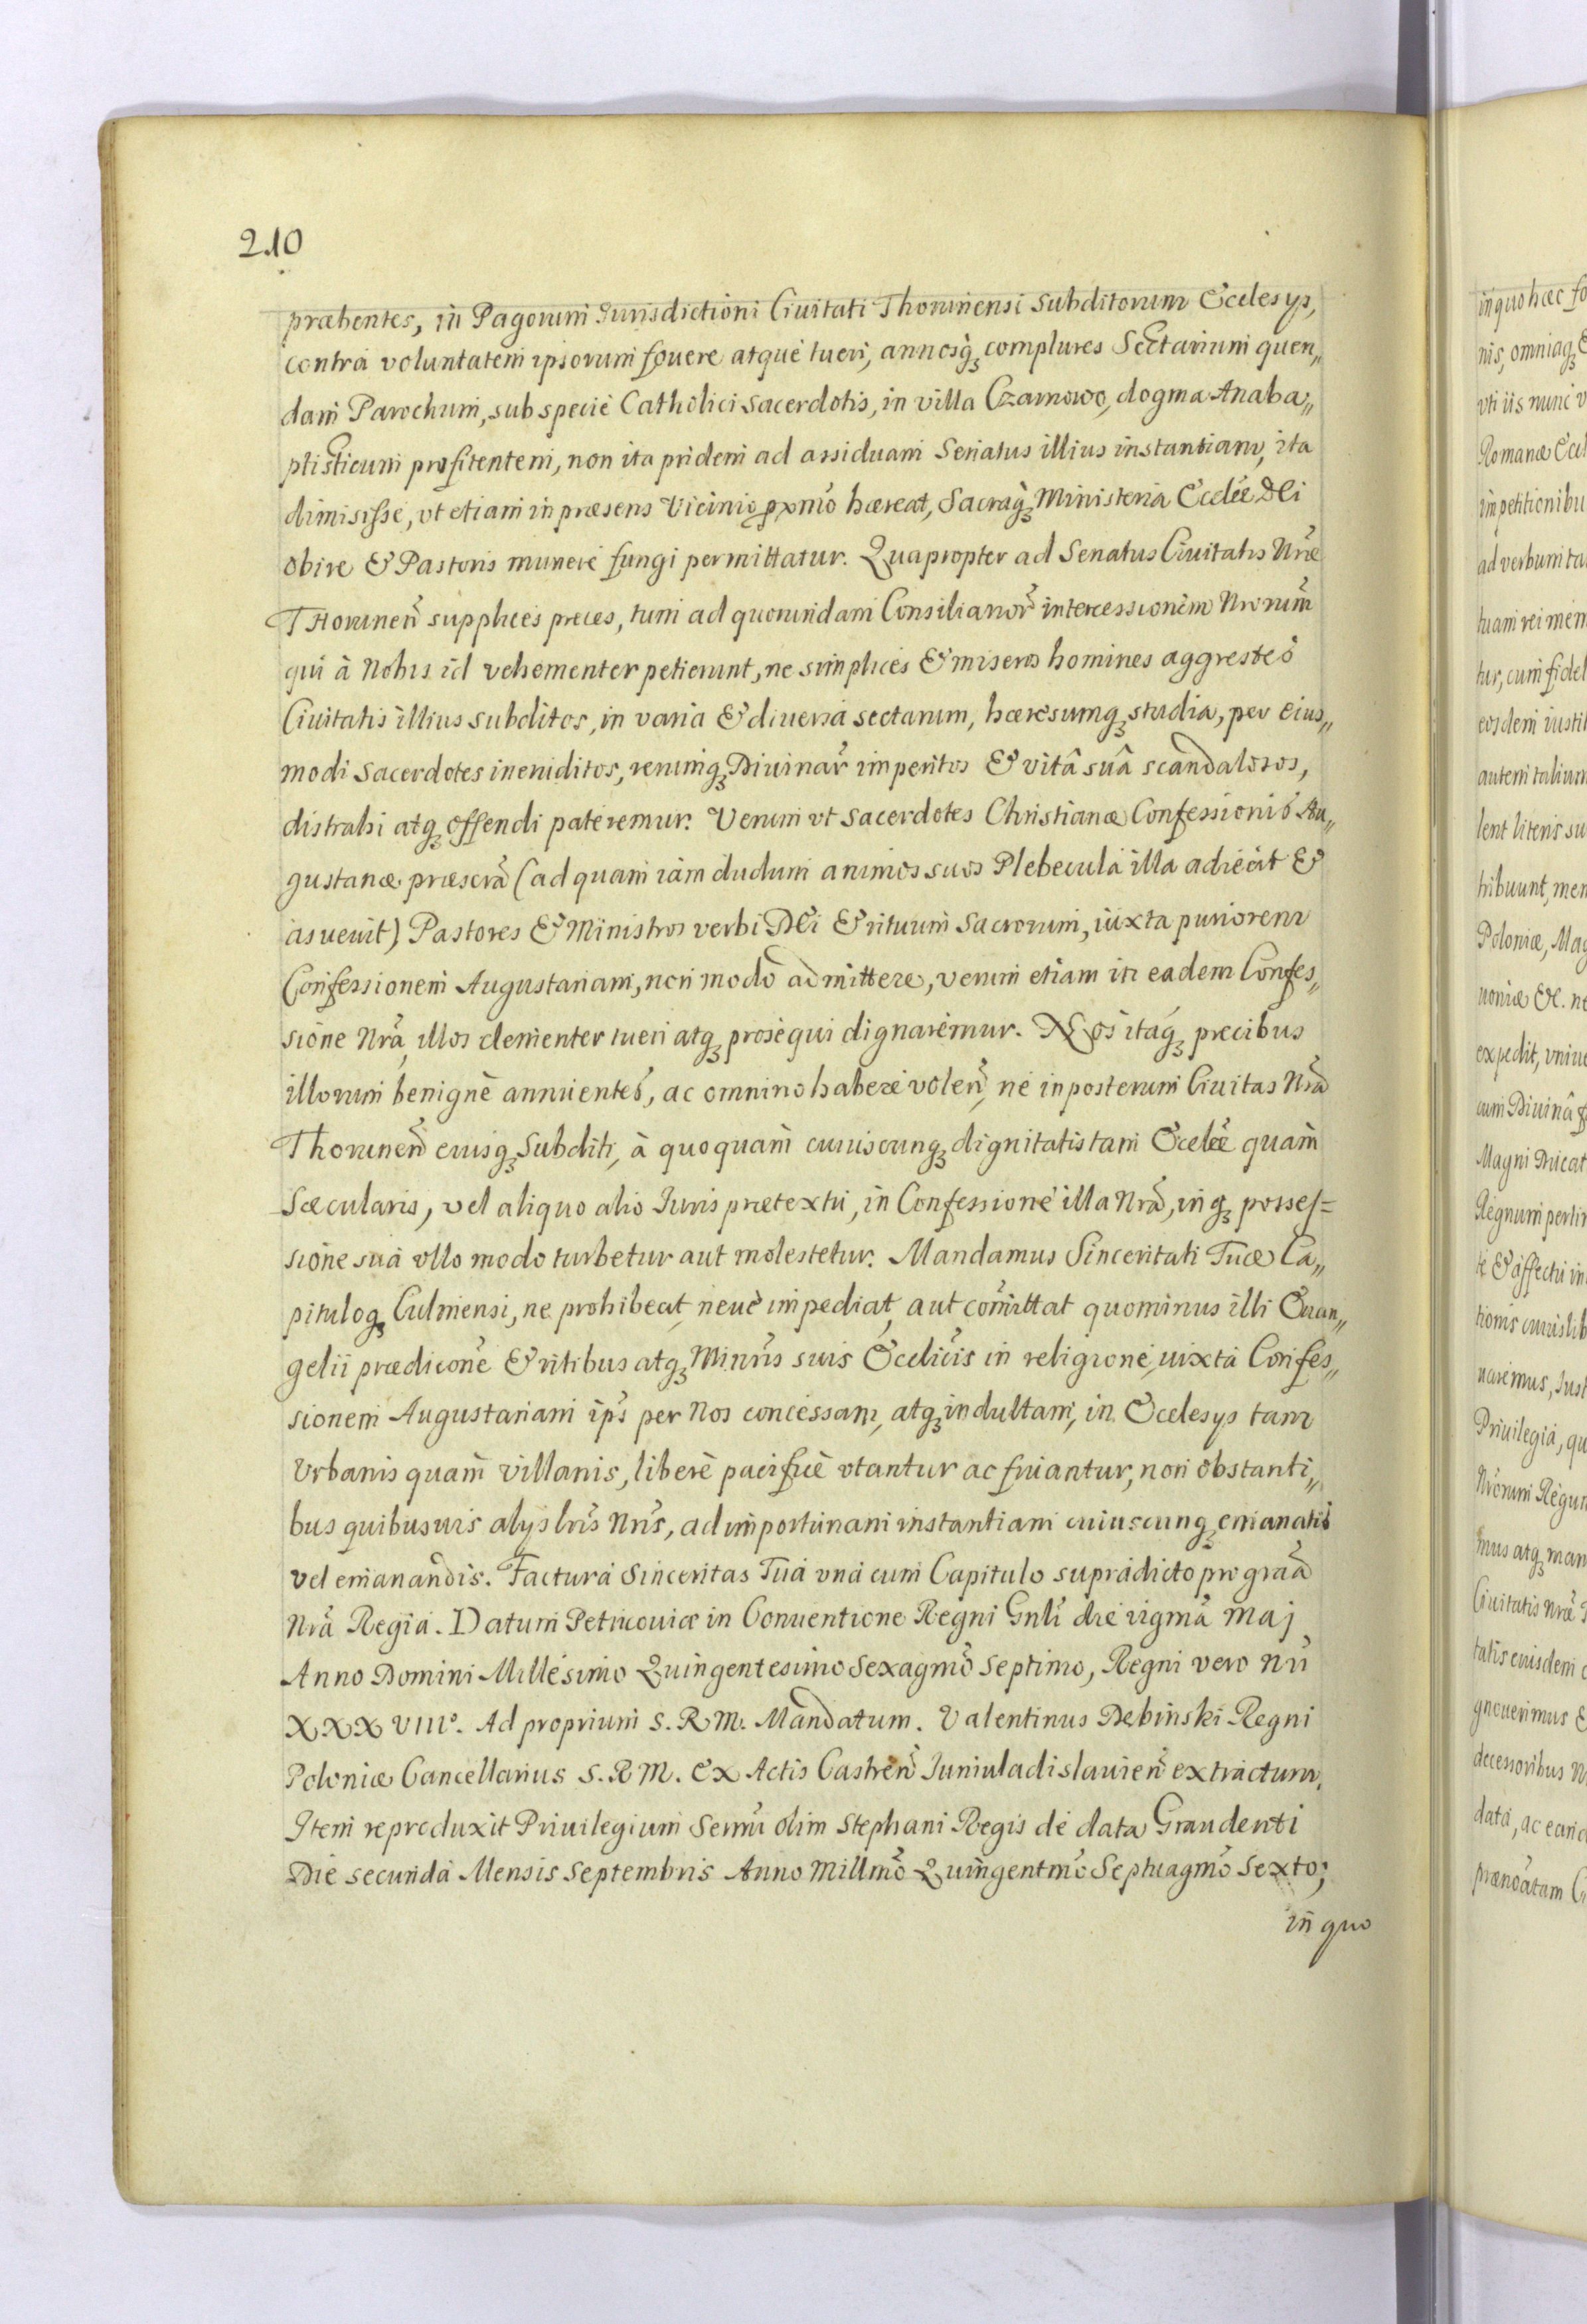 210
præbentes, in Pagorum Jurisdictioni Ciuitati Thoruinensi subditorum Ecclesys,
contra voluntatem ipsorum fouere atque tueri, annosq₃ complures Sectarium quen„
dam Parochum, sub specie Catholici Sacerdotis, in villa Czarnowo, dogma Anaba„
ptisticum profitentem, non ita pridem ad assiduam Senatus illius instantiam, ita
dimisisse, vt etiam in præsens Vicinio pxm̃o hæreat, Sacraq₃ Ministeria Eccl̃æ Dei
obire & Pastoris munere fungi permittatur. Quapropter ad Senatus Ciuitatis Nr̃æ
Thorunen̄ supplices preces, tum ad quorundam Consilianor̃ intercessionem Nrorum̃
qui à Nobis id vehementer petierunt, ne simplices & miseros homines aggrestes
Ciuitatis illius subditos, in varia & diuersa sectarum, hæresumq₃ studia, per eius„
modi Sacerdotes ineruditos, rerumq₃ Diuinar̃ imperitos & vitâ suâ scandalosos,
distrahi atq₃ offendi pateremur. Verum vt Sacerdotes Christianæ Confessionis Au„
gustanæ præser̃a (ad quam iam dudum animos suos Plebecula illa adiecit &
asueuit) Pastores & Ministros verbi Dei & rituum Sacrorum, iuxta puriorem
Confessionem Augustanam, non modo admittere, verum etiam in eadem Confes„
sione Nr̃a, illos clementer tueri atq₃ prosequi dignaremur. Nos itaq₃ precibus
illorum benignè annuentes, ac omnino habere volen̄, ne inposterum Ciuitas Nr̃a
Thorunen̄ eiusq₃ Subditi, à quoquam cuiuscunq₃ dignitatis tam Eccl̃æ quam
Sæcularis, vel aliquo alio Juris prætextu, in Confessione illa Nr̃a, inq₃ posses=
sione sua vllo modo turbetur aut molestetur. Mandamus Sinceritati Tuæ Ca„
pituloq₃ Culmensi, ne prohibeat, neue impediat, aut com̃ittat quominus illi Euan„
gelii prædicon̄e & ritibus atq₃ Minr̃is suis Ecclicis in religione, iuxta Confes„
sionem Augustanam ip̃s per Nos concessam, atq₃ indultam, in Ecclesys tam
Vrbanis quam villanis, liberè pacificè vtantur ac fruantur, non obstanti„
bus quibusuis alys lr̃is Nr̃is, ad importunam instantiam cuiuscunq₃ emanatis
vel emanandis. Factura Sinceritas Tua vna cum Capitulo supradicto pro gr̃aa
Nr̃a Regia. Datum Petricouiæ in Conuentione Regni Gnl̃i die vigm̃a Maj
Anno Domini Millesimo Quingentesimo Sexagm̃o Septimo, Regni vero Nr̃i
XXXVIIIº. Ad proprium S. R M. Mandatum. Valentinus Debinski Regni
Poloniæ Cancellarius S. R M. Ex Actis Castren̄ Juniuladislauien̄ extractum.
Item reproduxit Priuilegium Sermi olim Stephani Regis de data Graudenti
Die secunda Mensis Septembris Anno Millmo Quingentmo Septuagmo Sexto;
in quo
in quo hæc
nis, omniaq₃
vti iis nunc
Romanæ
impetitionibu
ad verbum
tuam rei
tur, cum fidel
eosdem
autem talium
lent literis su
tribuunt,
Poloniæ, Mag
uoniæ &c.
expedit,
cum Diuinâ
Magni Ducat
Regnum
& affectu in
tionis cuiuslib
Priuilegia, qu
Nrorum Regum
mus atq₃ man
Ciuitatis Nræ
tatis eiusdem
gnouerimus &
decessoribus
data, ac